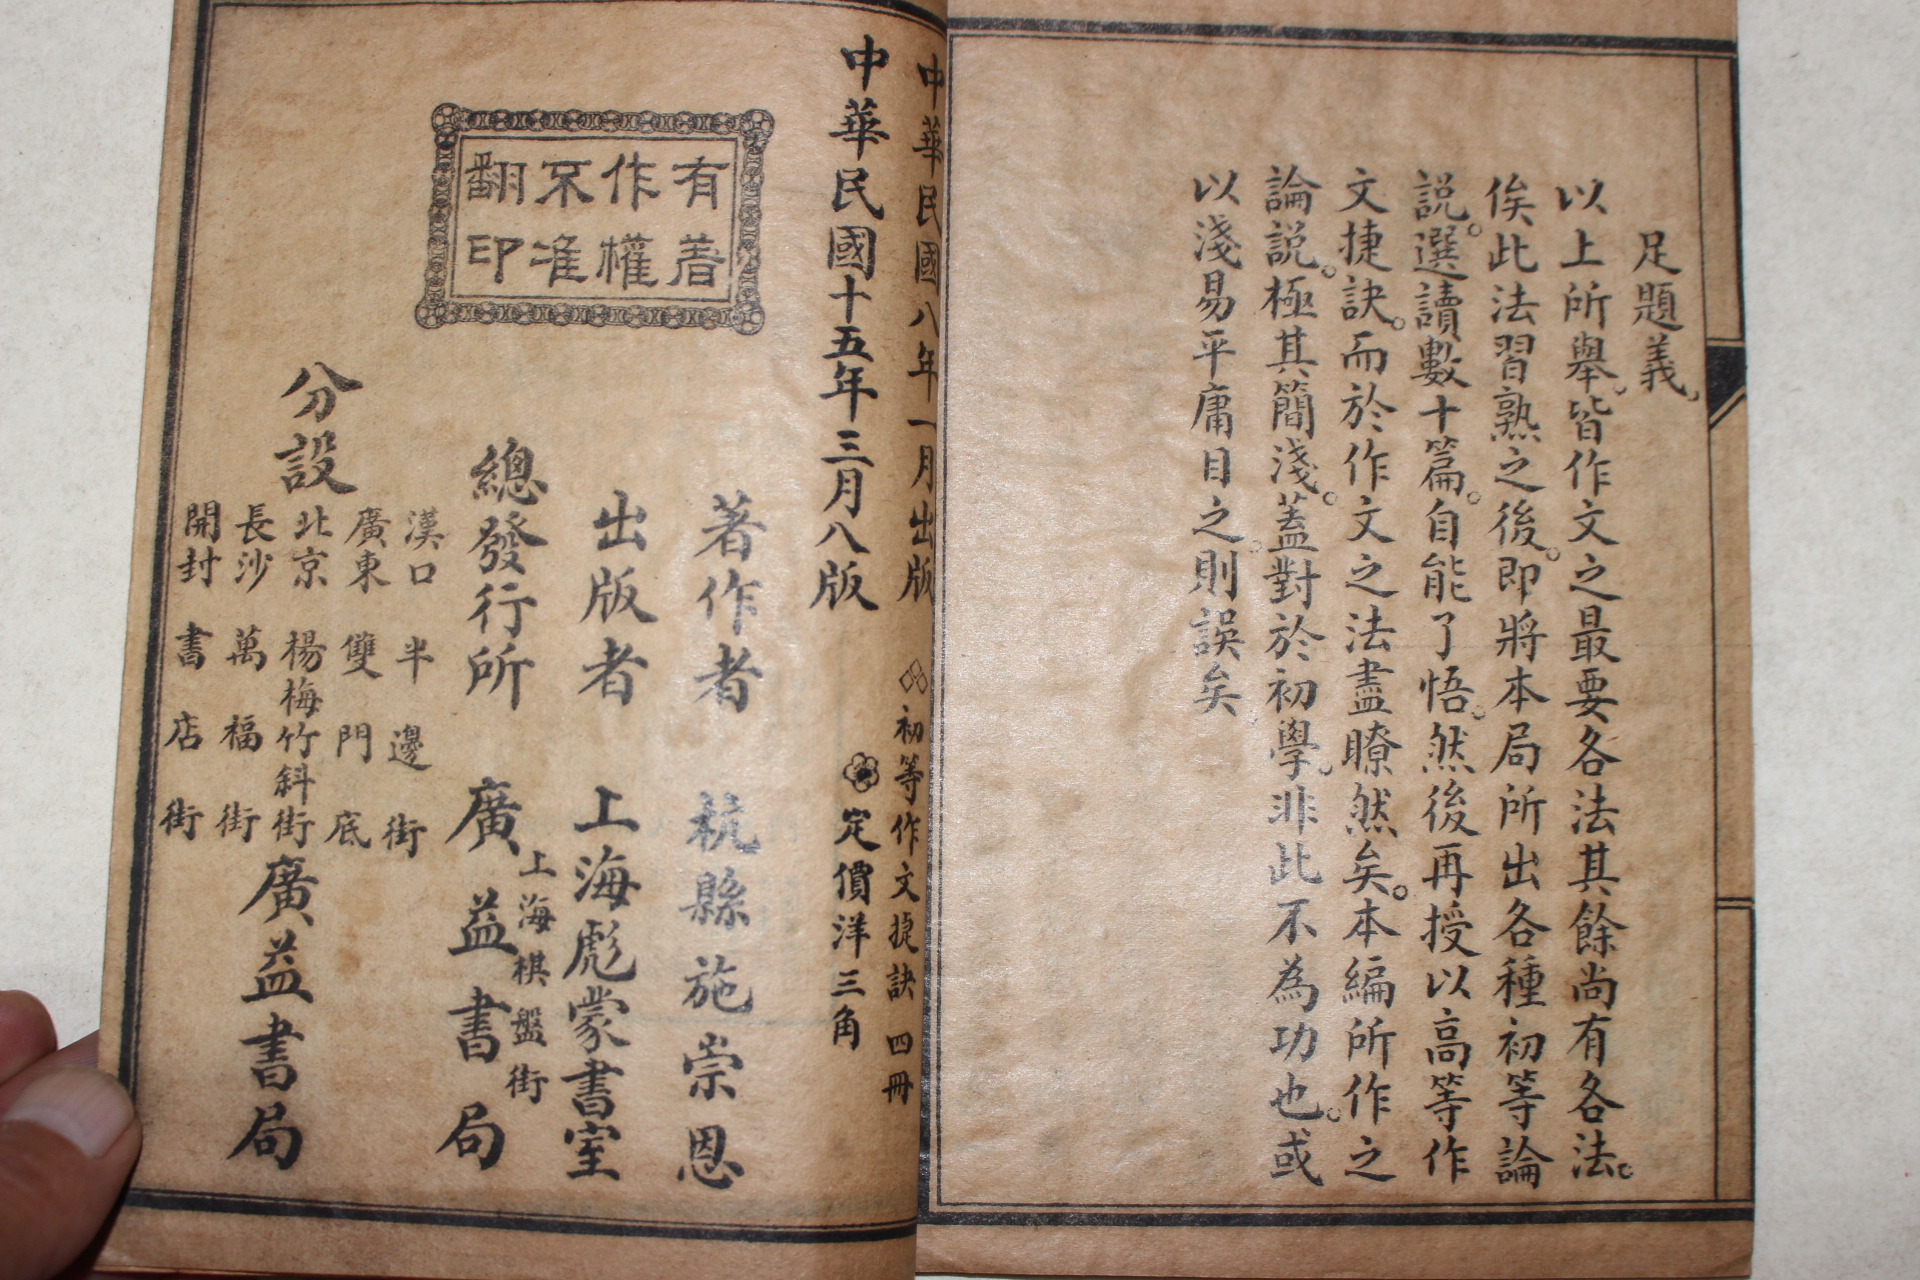 足題義。
以上所舉。皆作文之最要各法其餘尚有各法。
俟此法習熟之後。即將本局所出各種初等論
説。選讀數十篇。自能了悟。然後再授以高等作
文捷訣。而於作文之法盡瞭然矣。本編所作之
論説。極其簡淺。蓋對於初學。非此不為功也。或
以淺易平庸目之。則誤矣。
中華民國八年一月出版 初等作文捷訣 四冊
中華民國十五年三月八版 定價洋三角
有著
作權
不准
翻印
著作者 杭縣施崇恩
出版者 上海彪蒙書室
上海棋盤街
總發行所 廣益書局
漢口 半邊街
廣東 雙門底
分設 北京 楊梅竹斜街 廣益書局
長沙 萬福街
開封 書店街